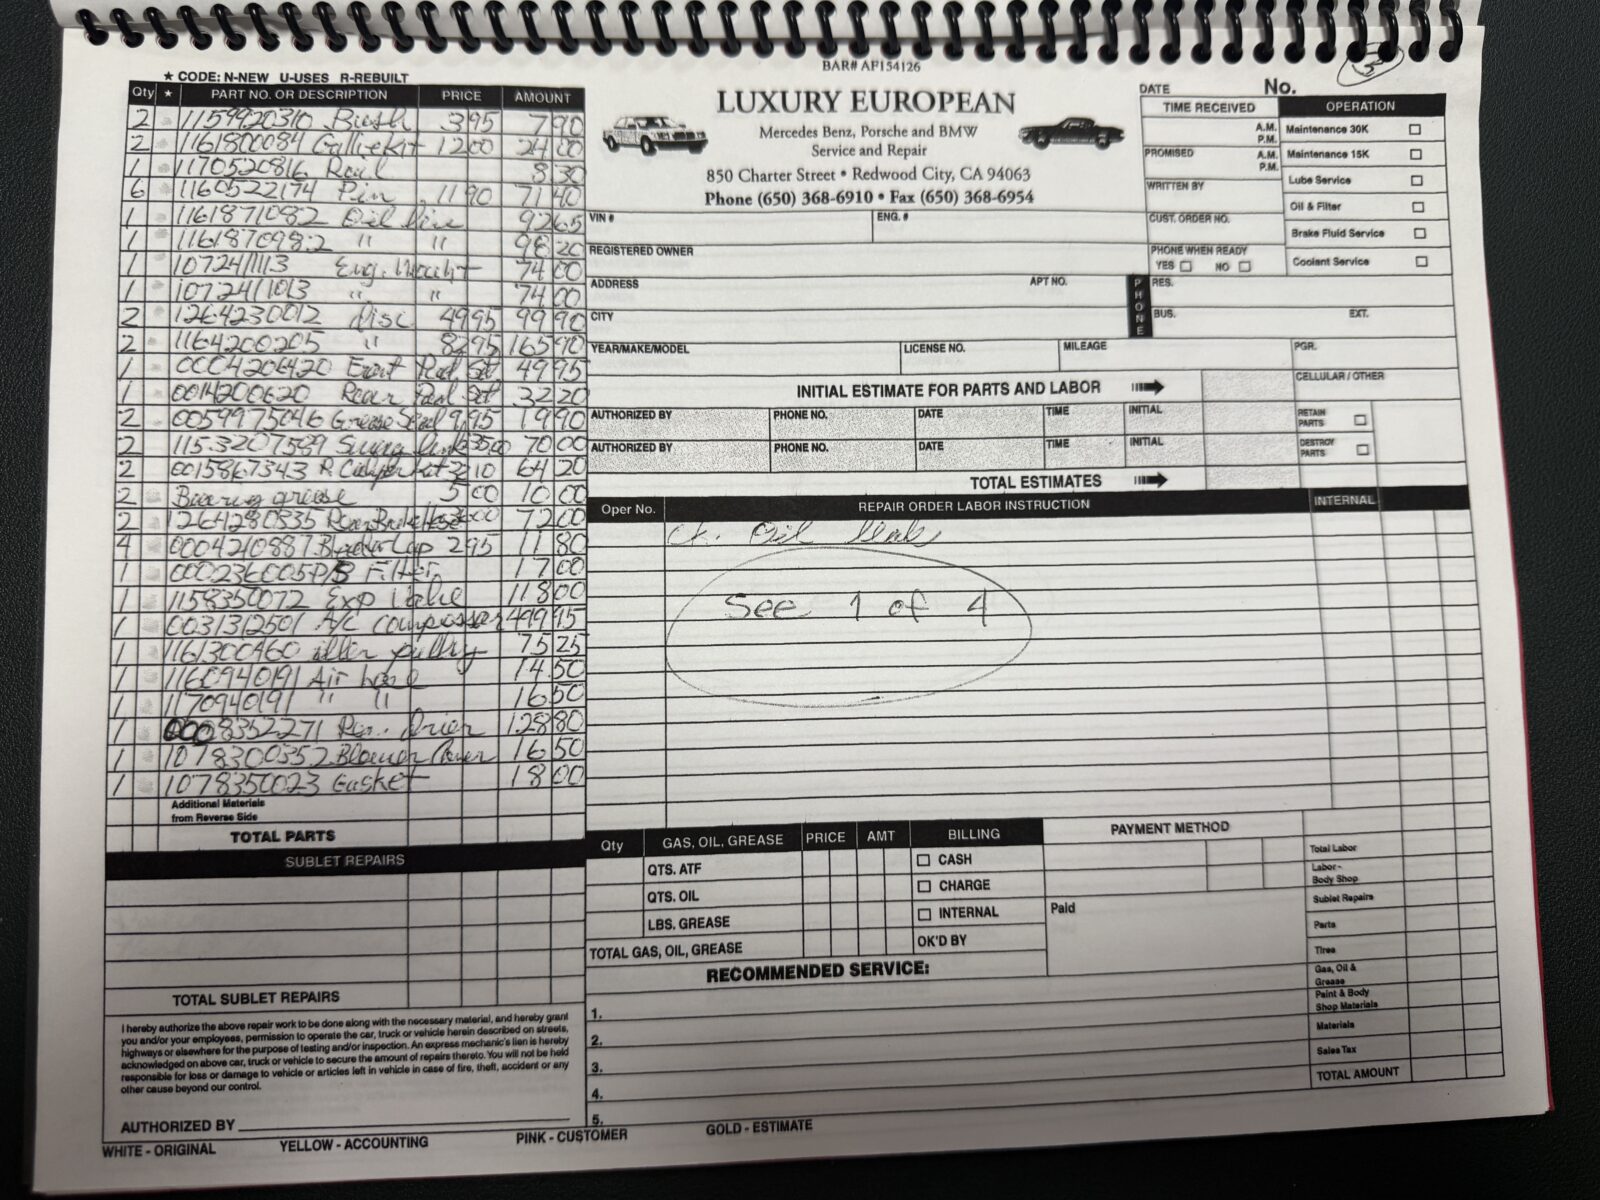 3
BAR# AF154126
★ CODE: N-NEW U-USES R-REBUILT
Qty ★ PART NO. OR DESCRIPTION PRICE AMOUNT
2 1159920310 Bush 3 95 7 90
2 1161800084 Kit 12 00 24 00
1 1170520816 Rail 8 30
6 1160522174 Pin 11 90 71 40
1 1161871082 Oil line 92 65
1 1161870982 " " 98 20
1 1072411113 Eng. Mount 74 00
1 1072411013 " " 74 00
2 1264230012 Disc 49 95 99 90
2 1164200205 " 82 95 165 90
1 0004206420 Front Pad Set 49 95
1 0014200620 Rear Pad Set 32 20
2 0059975046 Grease Seal 9.95 19 90
2 1153207589 link 35 00 70 00
2 0015867343 R. Caliper Kit 32 10 64 20
2 Bearing grease 5 00 10 00
2 1264280335 Rear Brake Hose 36 00 72 00
4 0004210887 Bleeder Cap 2 95 11 80
1 000236005 P/S Filter 17 00
1 1158350072 Exp Valve 118 00
1 0031312501 A/C compressor 499 95
1 1161300460 idler pully 75 25
1 1160940191 Air hose 14.50
1 1170940191 " " 16 50
1 0008352271 Rec. Drier 128 80
1 1078300352 Blower Cover 16 50
1 1078350023 Gasket 18 00
Additional Materials
from Reverse Side
TOTAL PARTS
SUBLET REPAIRS
TOTAL SUBLET REPAIRS
I hereby authorize the above repair work to be done along with the necessary material, and hereby grant
you and/or your employees, permission to operate the car, truck or vehicle herein described on streets,
highways or elsewhere for the purpose of testing and/or inspection. An express mechanic's lien is hereby
acknowledged on above car, truck or vehicle to secure the amount of repairs thereto. You will not be held
responsible for loss or damage to vehicle or articles left in vehicle in case of fire, theft, accident or any
other cause beyond our control.
AUTHORIZED BY
WHITE - ORIGINAL YELLOW - ACCOUNTING PINK - CUSTOMER GOLD - ESTIMATE
LUXURY EUROPEAN
Mercedes Benz, Porsche and BMW
Service and Repair
850 Charter Street • Redwood City, CA 94063
Phone (650) 368-6910 • Fax (650) 368-6954
DATE No.
TIME RECEIVED
A.M.
P.M.
PROMISED
A.M.
P.M.
WRITTEN BY
CUST. ORDER NO.
PHONE WHEN READY
YES NO
OPERATION
Maintenance 30K
Maintenance 15K
Lube Service
Oil & Filter
Brake Fluid Service
Coolant Service
VIN # ENG. #
REGISTERED OWNER
ADDRESS APT NO.
CITY
PHONE
RES.
BUS. EXT.
YEAR/MAKE/MODEL LICENSE NO. MILEAGE PGR.
INITIAL ESTIMATE FOR PARTS AND LABOR
CELLULAR / OTHER
AUTHORIZED BY PHONE NO. DATE TIME INITIAL
RETAIN
PARTS
AUTHORIZED BY PHONE NO. DATE TIME INITIAL
DESTROY
PARTS
TOTAL ESTIMATES
Oper No. REPAIR ORDER LABOR INSTRUCTION INTERNAL
ck. Oil leak
See 1 of 4
Qty GAS, OIL, GREASE PRICE AMT
QTS. ATF
QTS. OIL
LBS. GREASE
TOTAL GAS, OIL, GREASE
BILLING
CASH
CHARGE
INTERNAL
OK'D BY
PAYMENT METHOD
Paid
Total Labor
Labor -
Body Shop
Sublet Repairs
Parts
Tires
Gas, Oil &
Grease
Paint & Body
Shop Materials
Materials
Sales Tax
TOTAL AMOUNT
RECOMMENDED SERVICE:
1.
2.
3.
4.
5.